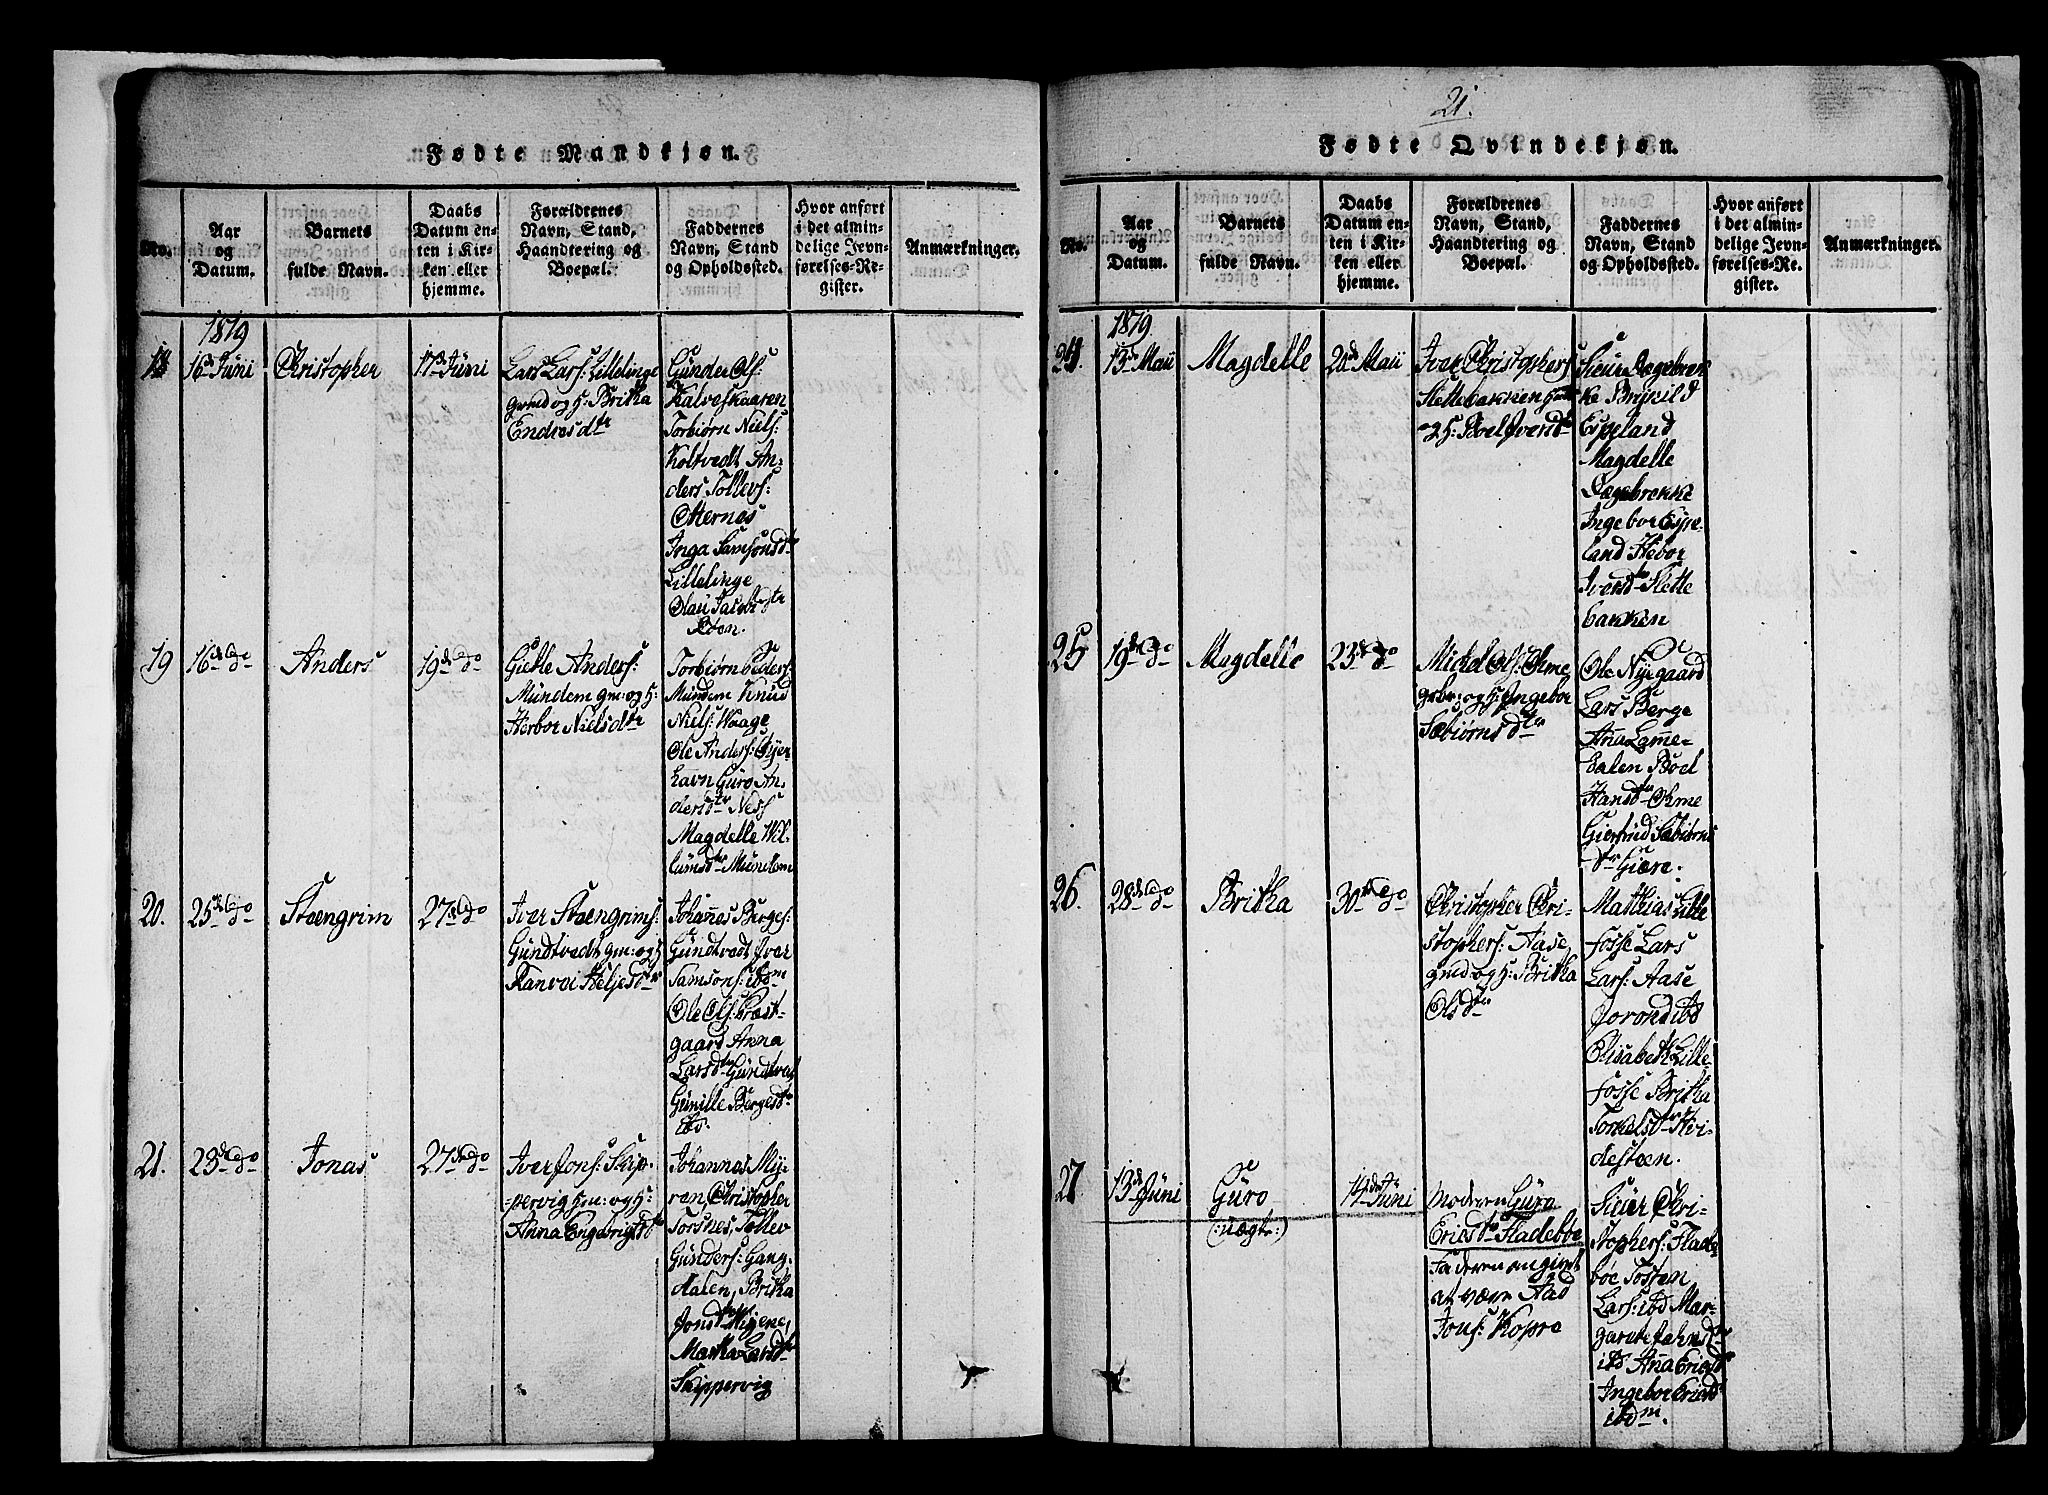 Fødte Mandkjøn.
No.
Aar
og
Datum.
Barnets
fulde Navn.
Daabs
Datum en-
ten i Kir-
ken eller
hjemme.
Forældrenes
Navn, Stand,
Haandtering og
Boepæl.
Faddernes
Navn, Stand
og Opholdssted.
Hvor anført
i det almin-
delige Jevn-
førelses-Re-
gister.
Anmærkninger.
1819
18
16de Juni
Christopher
17de Juni
Lars Lars: Lillelinge
gmd og H: Britha
Endresdtr
Gunder Ols:
Kalveskaaren
Torbiørn Niels:
Koltvedt An-
ders Tollevs:
Otternes
Inga Samsonsdtr
Lillelinge
Olau
19
16de do
Anders
19de do
Gietle Anders:
Mundem gm: og H:
Herbor Nielsdtr
Torbiørn Peders:
Mundem Knud
Niels: Waage
Ole Anders:
havn Guro An-
dersdtr Ness
Magdelle Wil-
lumsdtr Mundem
20.
25de do
Steengrim
27de do
Iver Steengrims:
Gundtvedt gm: og H
Ranvei Heljesdtr
Johanes Berges:
Gundtvedt Iver
Samsons: ibdm
Ole Ols: Præst-
gaard Anna
Larsdtr Gundtved
Gunille Bergesdtr
ibd.
21.
23de do
Jonas
27de do
Iver Jons: Skip-
pervig Hm: og H:
Anna Engebrigtsdtr
Johannes My-
ren, Christopher
Torsnes, Tollev
Gunders: Gang-
dalen, Britha
Jonsdtr
Martha Larsdtr
Skippervig
21.
Fødte Qvindekjøn.
No.
Aar
og
Datum.
Barnets
fulde Navn.
Daabs
Datum en-
ten i Kir-
ken eller
hjemme.
Forældrenes
Navn, Stand,
Haandtering og
Boepæl.
Faddernes
Navn, Stand
og Opholdssted.
Hvor anført
i det almin-
delige Jevn-
førelses-Re-
gister.
Anmærkninger.
1819.
24.
13de Maii
Magdelle
20de Maii
Iver Christophers
Slettebakken
H: Boel Iversdtr
Siur Dagebrek
ke Brynild
Espeland
Magdelle
Dagebrekke
Ingebor Espe-
land Hebor
Iversdtr Slette
bakken
25
19de do
Magdelle
23de do
Michel Ols: Ohme
gbr: og H: Ingebor
Sæbiørnsdtr
Ole Nygaard
Lars Berge
Aña Lame-
Ealen Boel
Hansdtr Ohme
Giertrud Sæbiørns
dtr Giære.
26.
28de do
Britha
30de do
Christopher Chri-
stophers: Aase,
gmd og H: Britha
Olsdtr
Matthias Lille
fosse Lars
Lars: Aase
Joron ibd
Elisabeth Lille-
fosse Britha
Torkelsdtr Hvi-
desteen.
27
13de Juni
Guro
(: uægte :)
14de Juni
Moderen Guro
Ericsdtr Fladebøe
Faderen angivet
at være Aad
Jons: Kopre
Siur Chri-
stophers: Flade
bøe Tosten
Lars: ibd Mar-
garete Johnsdtr
ibd Aña Ericsdtr
Ingebor Ericsdtr
ibdm.